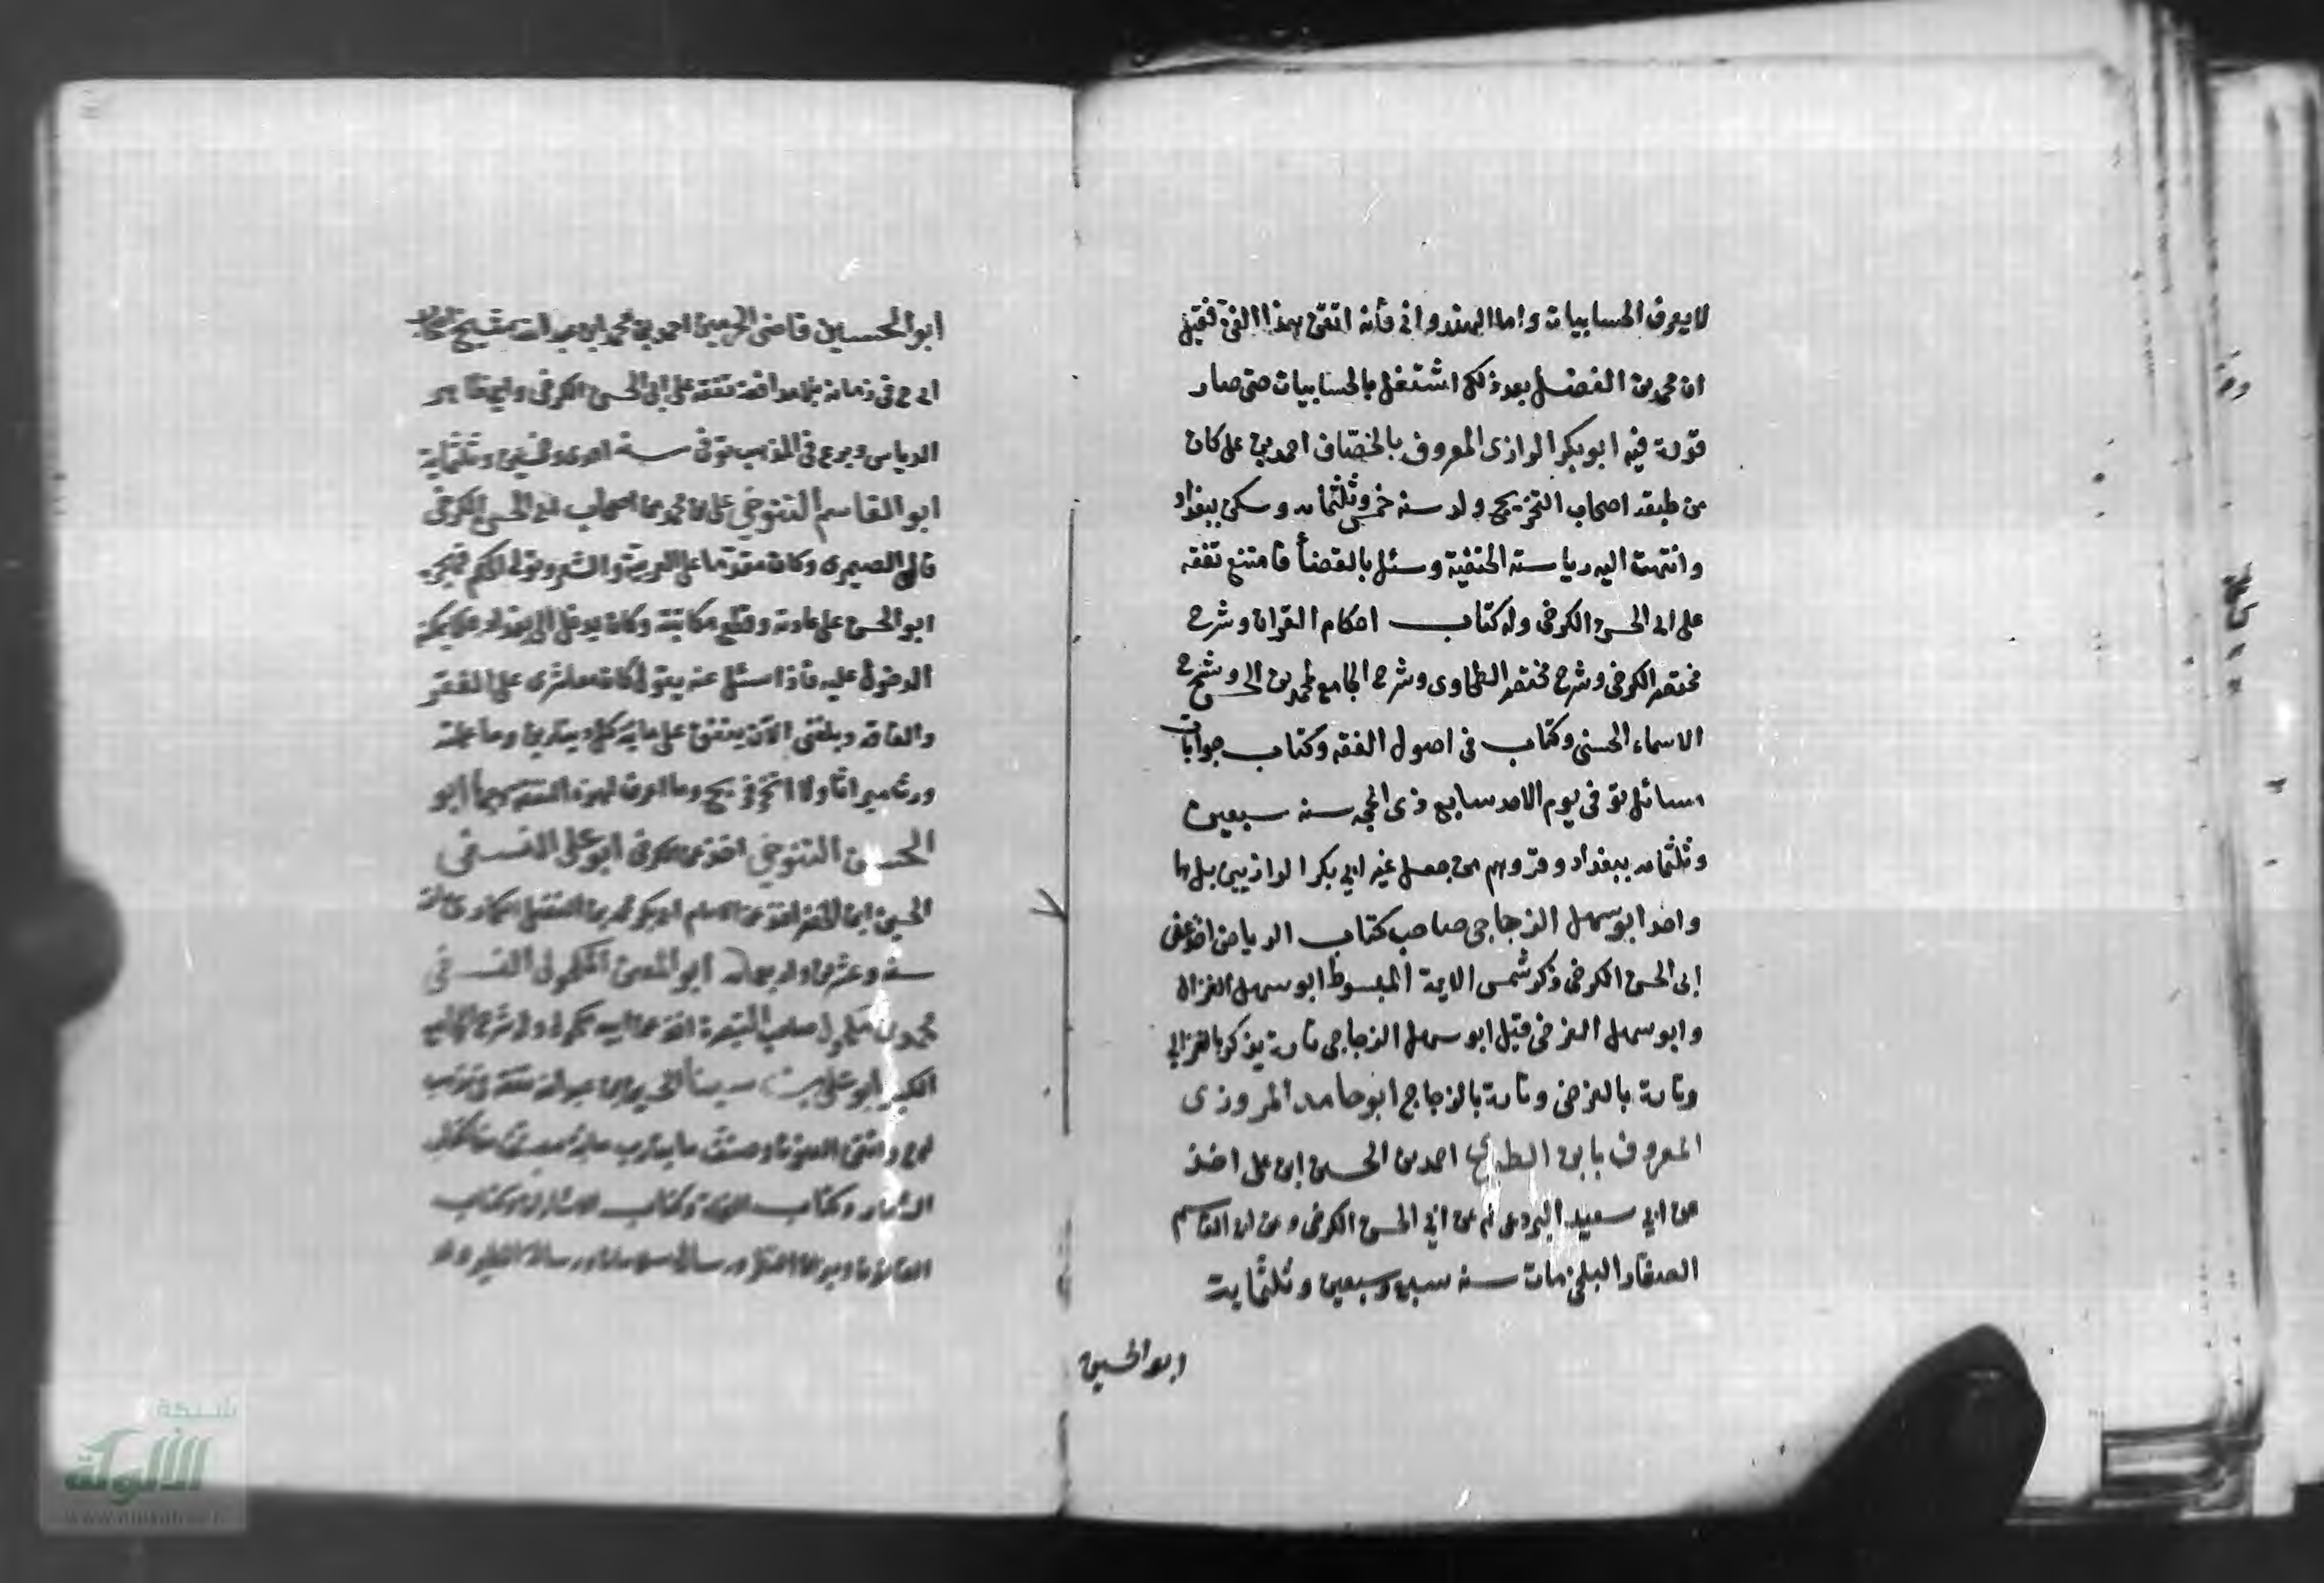 لا يعرف الحسابيات واما الهندوانى فأنه اتقن بهذا الفن فقيل
ان محمد بن الفضل بعد ذلك اشتغل بالحسابيات حتى صار
قدوة فيه ابو بكر الرازى المعروف بالخصّاف احمد بن على كان
من طبقة اصحاب التخريج ولد سنه خمس وثلثمايه وسكن ببغداد
وانتهت اليه رياسته الحنفية وسئل بالقضأ فامتنع تفقه
على ابى الحسن الكرخى وله كتاب احكام القران وشرح
مختصر الكرخى وشرح مختصر الطحاوى وشرح الجامع لمحمد بن الحسن وشرح
الاسماء الحسنى وكتاب فى اصول الفقه وكتاب جوابات
مسائل توفى يوم الاحد سابع ذى الحجه سنه سبعين
وثلثمايه ببغداد وقد وهم من جعل غير ابى بكر الرازيين بل هما
واحد ابو سهل الزجاجى صاحب كتاب الرياض اخذ عن
ابى الحسن الكرخى وذكر شمس الايمة المبسوط ابو سهل الغزال
وابو سهل الفرضى قيل ابو سهل الزجاجى تارة يذكر بالغزالى
وتارة بالفرضى وتارة بالزجاج ابو حامد المروزى
المعروف بابن الطبرى احمد بن الحسين ابن على اخذ
عن ابى سعيد البردعى ثم عن ابى الحسن الكرخى وعن ابى القاسم
الصفار البلخى مات سنه سبع وسبعين وثلثماية
ابو الحسين
ابو الحسين قاضى الحرمين احمد بن محمد ابن عبد الله شيخ
فى زمانه بلا مدافعة تفقه على ابى الحسن الكرخى وابى طاهر
الدباس وبرع فى المذهب توفى سنه احدى وخمسين وثلثماية
ابو القاسم التنوخى على بن محمد من اصحاب ابى الحسن الكرخى
قال الصيمرى وكان مقدما على العربية والشعر وتولى الحكم فهجره
ابو الحسن على عادته وقطع مكاتبته وكان يدخل الى بغداد فلا يمكنه
الدخول عليه فاذا سئل عنه يقول كان معاشرى على الفقر
والفاقة وبلغنى الان ينفق على مايدته كل دينارين وما علمته
ورث ميراثا ولا اتجر فربح وما اعرف لهذه النفقه ابو
الحسن التنوخى اخذ عن الكرخى ابو على النسفى
الحسين ابن الخضر اخذ عن الامام ابى بكر محمد بن الفضل سنه
وعشرين واربعمايه ابو المعين المكحولى النسفى
محمد بن مكحول صاحب التبصرة وله شرح الجامع
الكبير ابو على بن سينا الحسين بن عبد الله تفقه فى مذهب
واتقن الفنون وصنف ما يقارب مايه مصنف منها كتاب
الشفا وكتاب النجاة وكتاب الاشارات وكتاب
القانون
شبكة
الألوكة